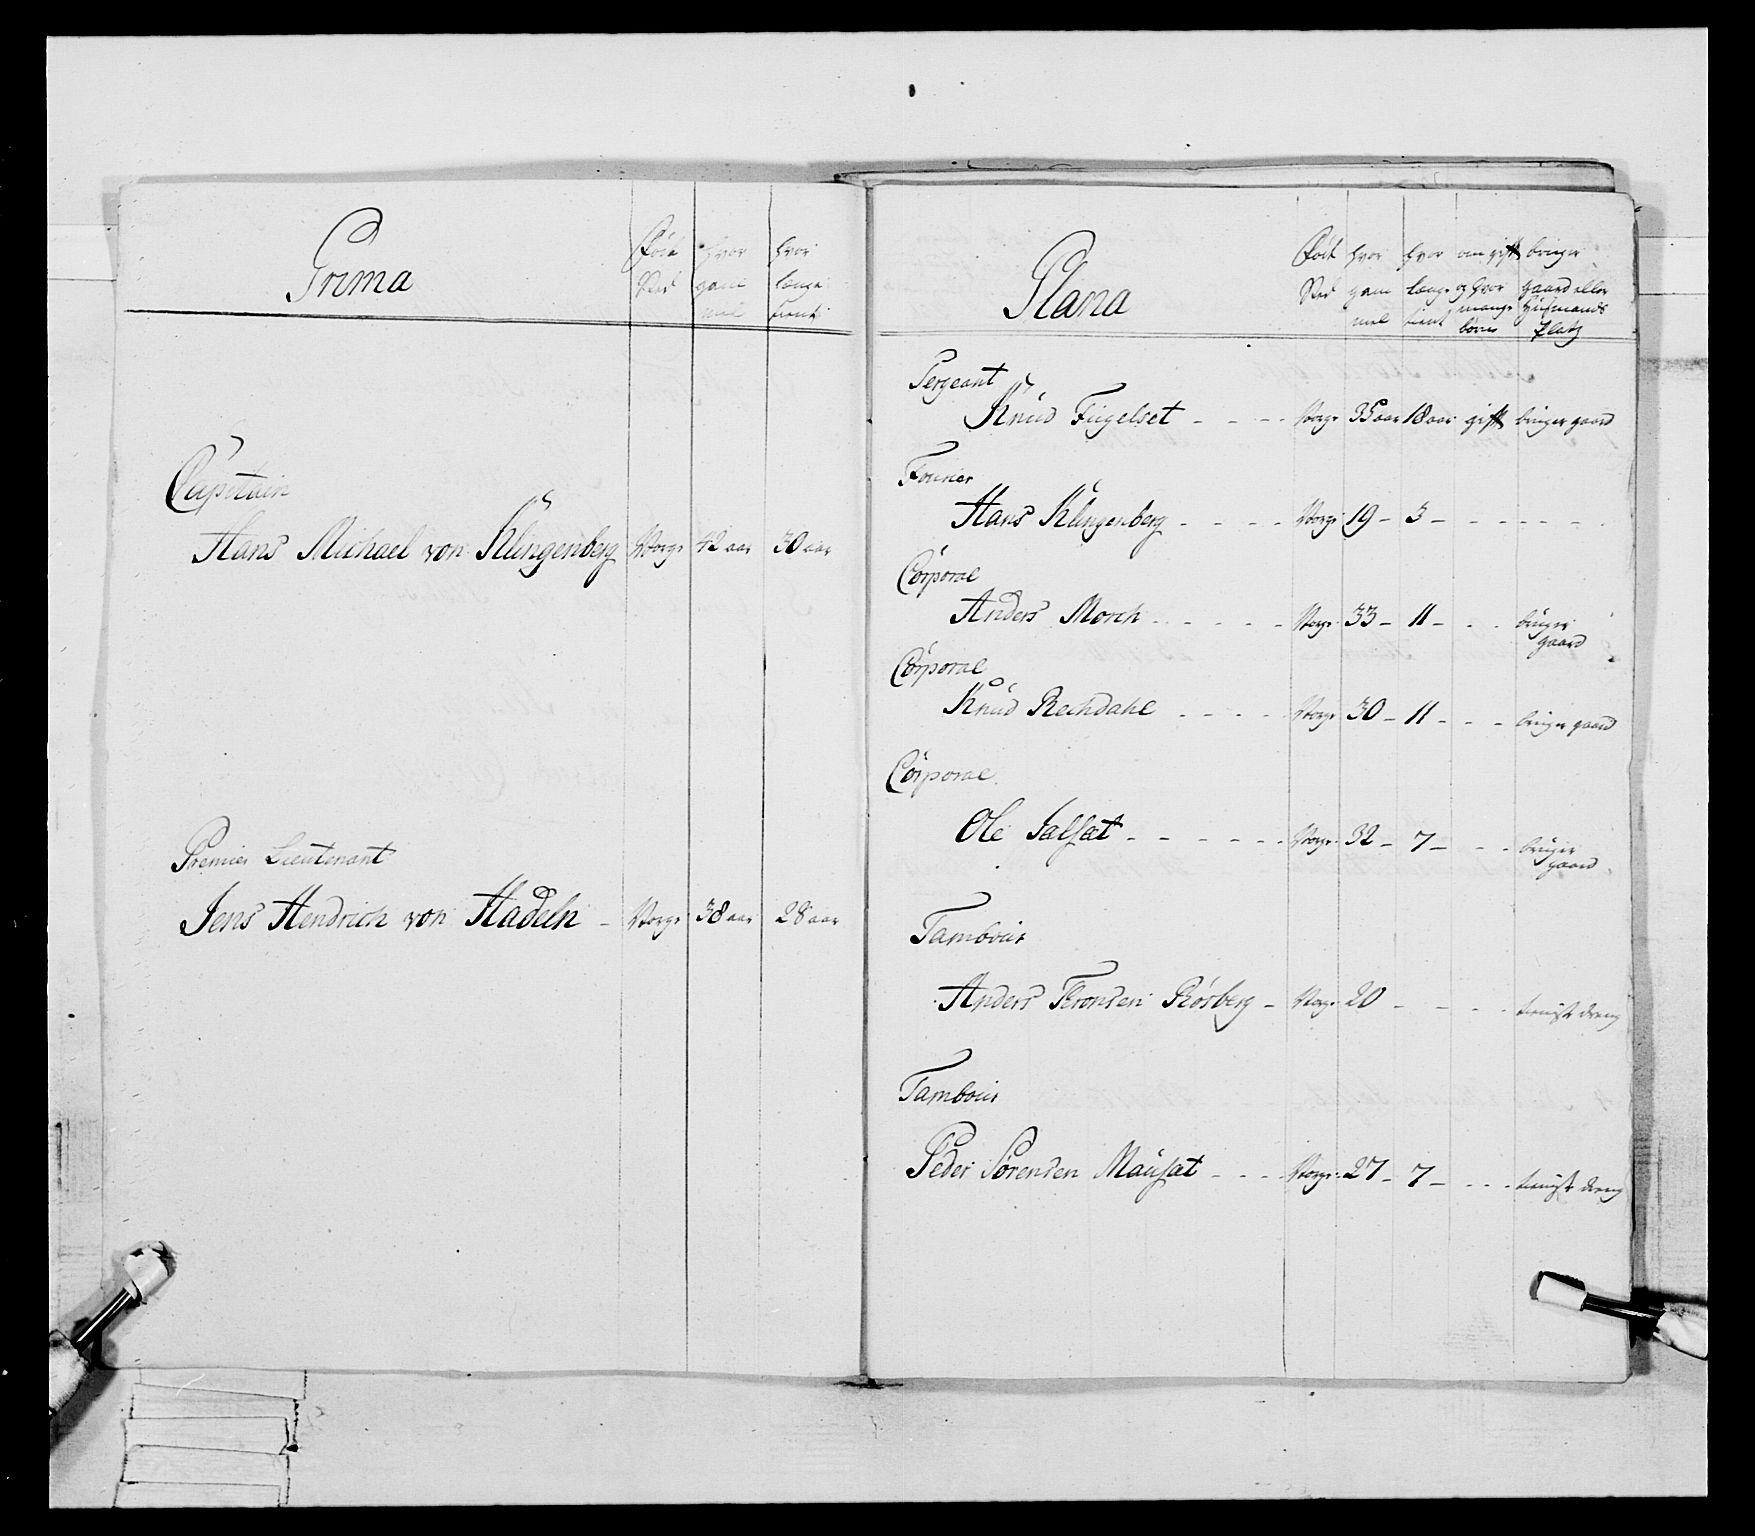 Prima
Fød hvor hvor
Sted gam længe
mel tient
Capitain
Hans Michael von Klingenberg Norge 42 aar 30 aar
Premier Lieutenant
Jens Hendrich von Hadeln - Norge 38 aar 28 aar
Plana
Fød hvor hvor om gift bruger
Sted gam længe og hvor gaard eller
mel tient mange Huusmands
børn platz
Sergeant
Knud Fugelset - - - Norge 35 aar 18 aar gift bruger gaard
Fourier
Hans Klingenberg - - - - Norge 19 - 3 - - - - - -
Corporal
Anders Morch - - - - - Norge 33 - 11 - - - bruger
gaard
Corporal
Knud Rechdahl - - - - Norge 30 - 11 - - - bruger gaard
Corporal
Ole Salsæt - - - - - - Norge 32 - 7 - - - bruger
gaard
Tambour
Anders Tronsen Rösberg - Norge 20 - - - - tienist dreng
Tambour
Peder Sørensen Mausæt - - - - Norge 27 - 7 - - - - tienist dreng